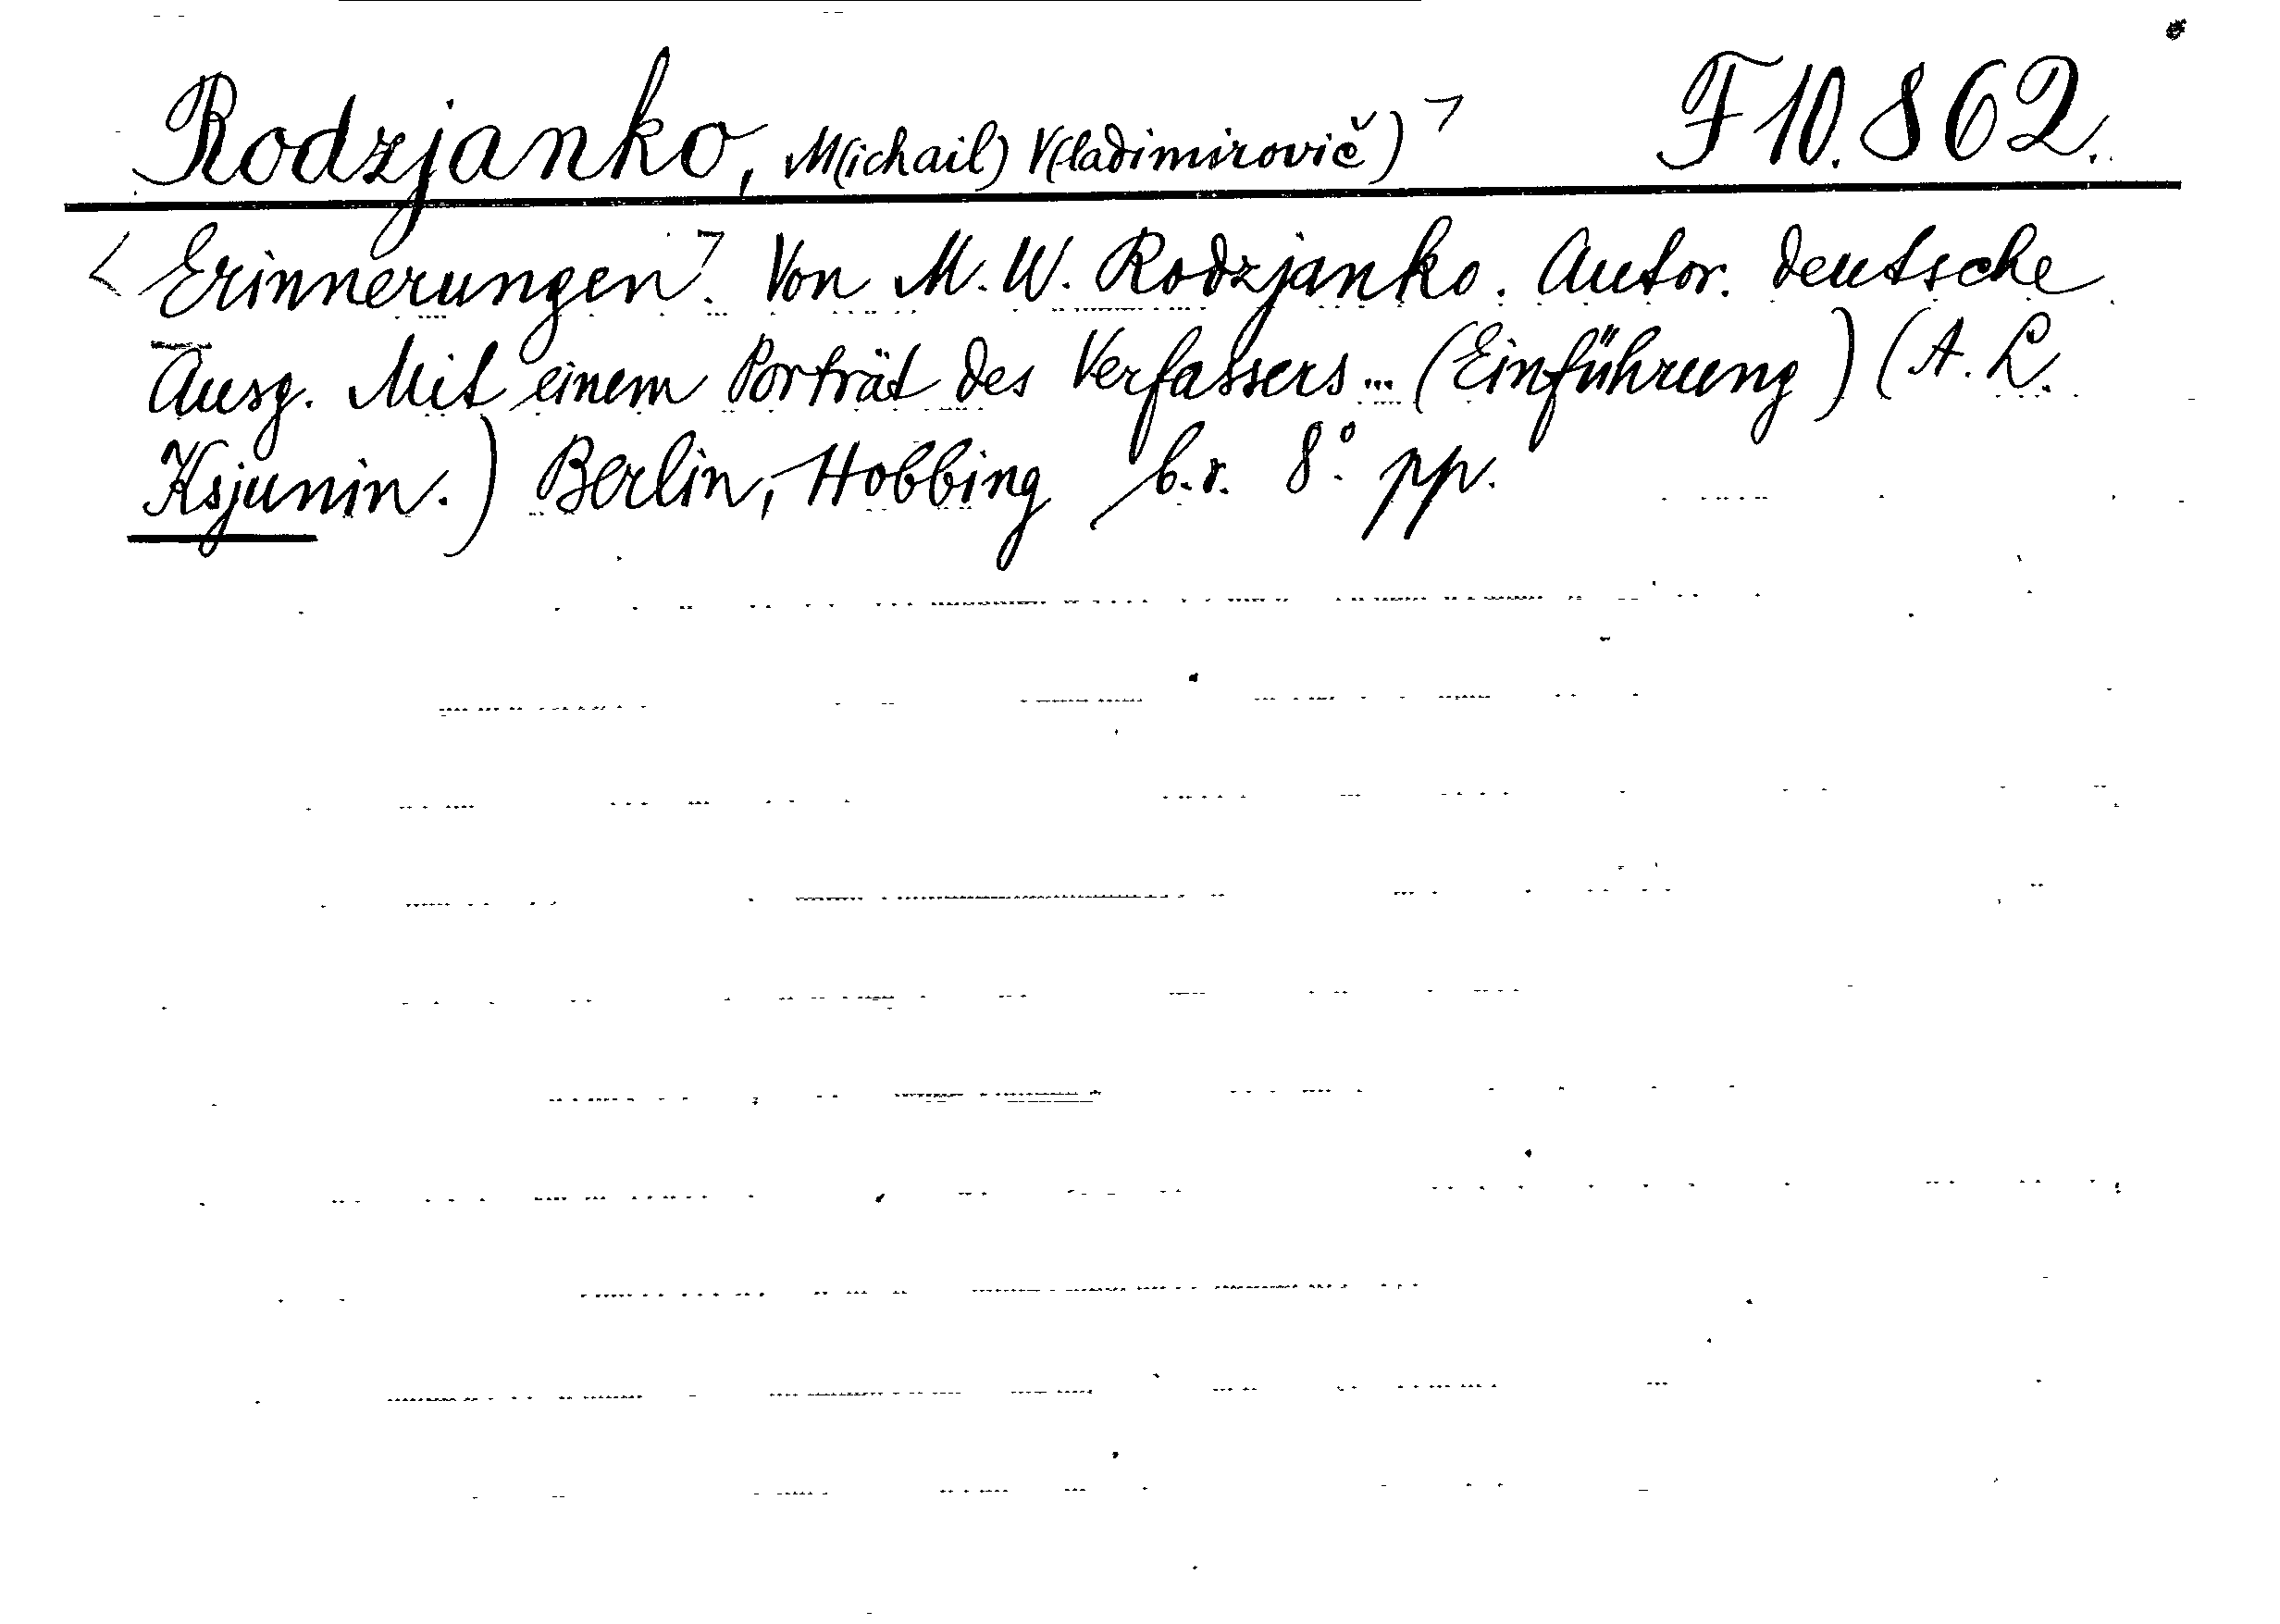 Rodzjanko, M(ichail) V(ladimirovič)> F 10.862.
<Erinnerungen>. Von M. W. Rodzjanko. Autor. deutsche
Ausg. Mit einem Porträt des Verfassers ... (Einführung) (A. L.
Ksjunin.) Berlin, Hobbing b.r. 8° pp.